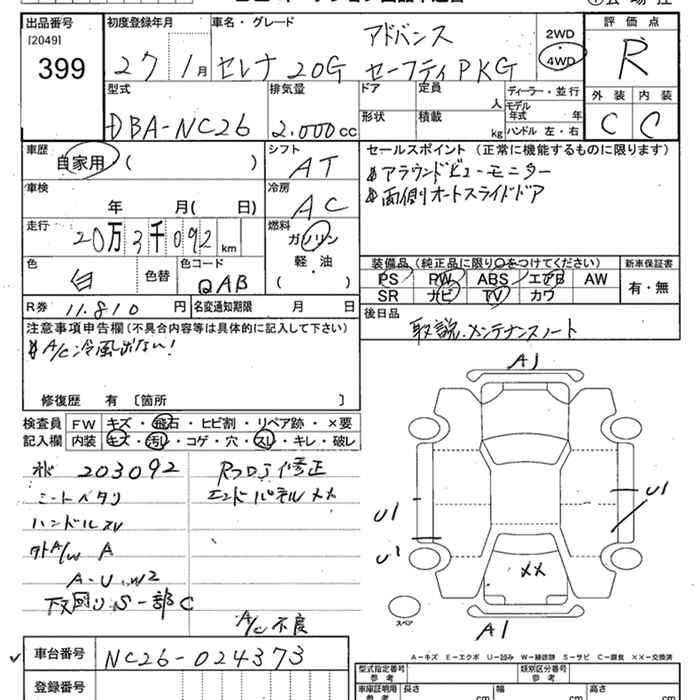 出品番号
[2049]
399
初度登録年月
27 1月
車名・グレード
アドバンス
セレナ 20G セーフティPKG
2WD
4WD
評価点
R
型式
DBA-NC26
排気量
2.000cc
ドア
形状
定員
人
積載
kg
ディーラー・並行
モデル年式 年
ハンドル 左・右
外装
内装
C
C
車歴
自家用 ( )
シフト
AT
セールスポイント (正常に機能するものに限ります)
アラウンドビューモニター
両側オートスライドドア
車検
年 月( 日)
冷房
AC
走行
20万3千092km
燃料
ガソリン
軽・油
( )
色
白
色替
色コード
QAB
装備品 (純正品に限り○をつけてください)
PS PW ABS エアB AW
SR ナビ TV カワ
新車保証書
有・無
R券 11.810円
名変通知期限 月 日
後日品
取説.メンテナンスノート
注意事項申告欄 (不具合内容等は具体的に記入して下さい)
A/C冷風出ない!
修復歴 有〔箇所 〕
検査員記入欄
FW キズ・飛石・ヒビ割・リペア跡・×要
内装 キズ・汚レ・コゲ・穴・スレ・キレ・破レ
203092
シートヘタリ
A
A-U.W2
下回りS一部C
修正
エンドパネルXX
A/C不良
A1
U1
U1
U1
XX
A1
スペア
A-キズ E-エクボ U-凹み W-補修跡 S-サビ C-腐食 ××-交換済
車台番号
NC26-024373
登録番号
型式指定番号
参考
類別区分番号
参考
車庫証明用
参考
長さ cm
幅 cm
高さ cm